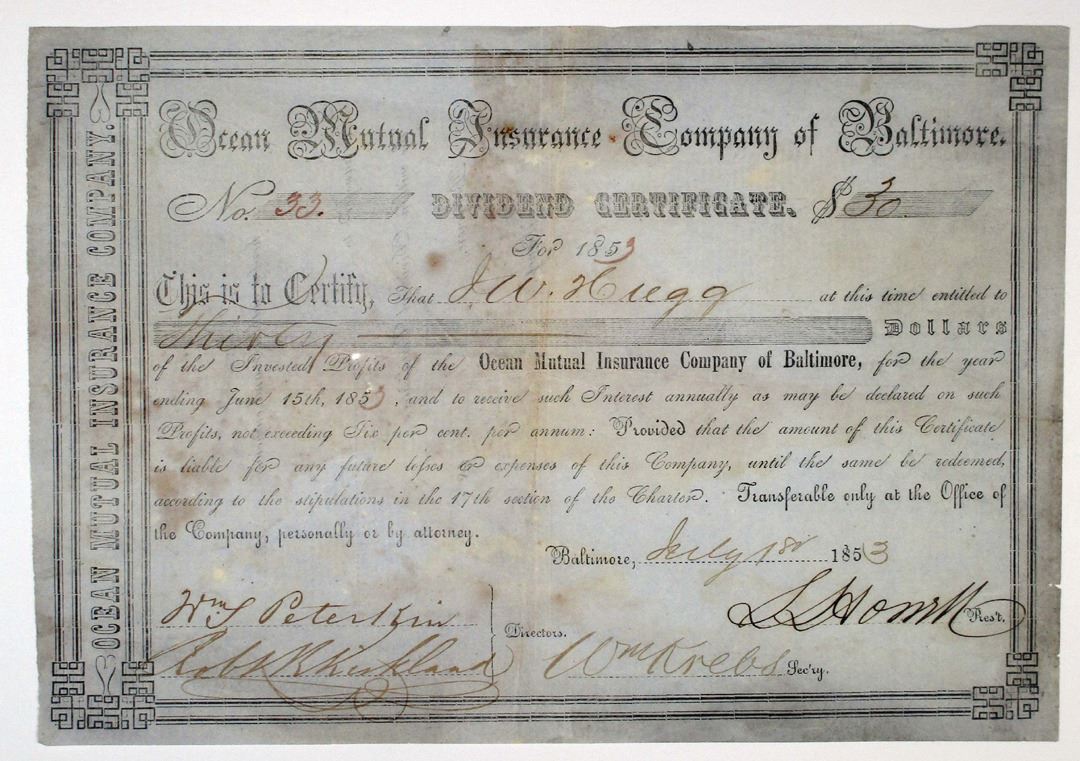 Ocean Mutual Insurance Company of Baltimore.
No. 33. DIVIDEND CERTIFICATE. $ 30
For 1853
This is to Certify, That J W. Hugg at this time entitled to
Thirty Dollars
of the Invested Profits of the Ocean Mutual Insurance Company of Baltimore, for the year
ending June 15th, 1853, and to receive such Interest annually as may be declared on such
Profits, not exceeding Six per cent. per annum: Provided that the amount of this Certificate
is liable for any future losses or expenses of this Company, until the same be redeemed,
according to the stipulations in the 17th section of the Charter. Transferable only at the Office of
the Company, personally or by attorney.
Baltimore, July 1st 1853
Wm S Peterkin
Robt R Kirkland
Directors.
Pres't.
Wm Krebs Sec'ry.
OCEAN MUTUAL INSURANCE COMPANY.